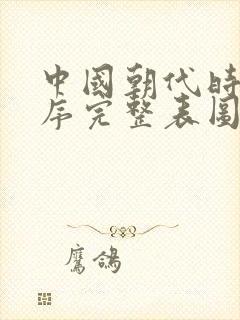 中國朝代時
序完整表圖
鷹鴿